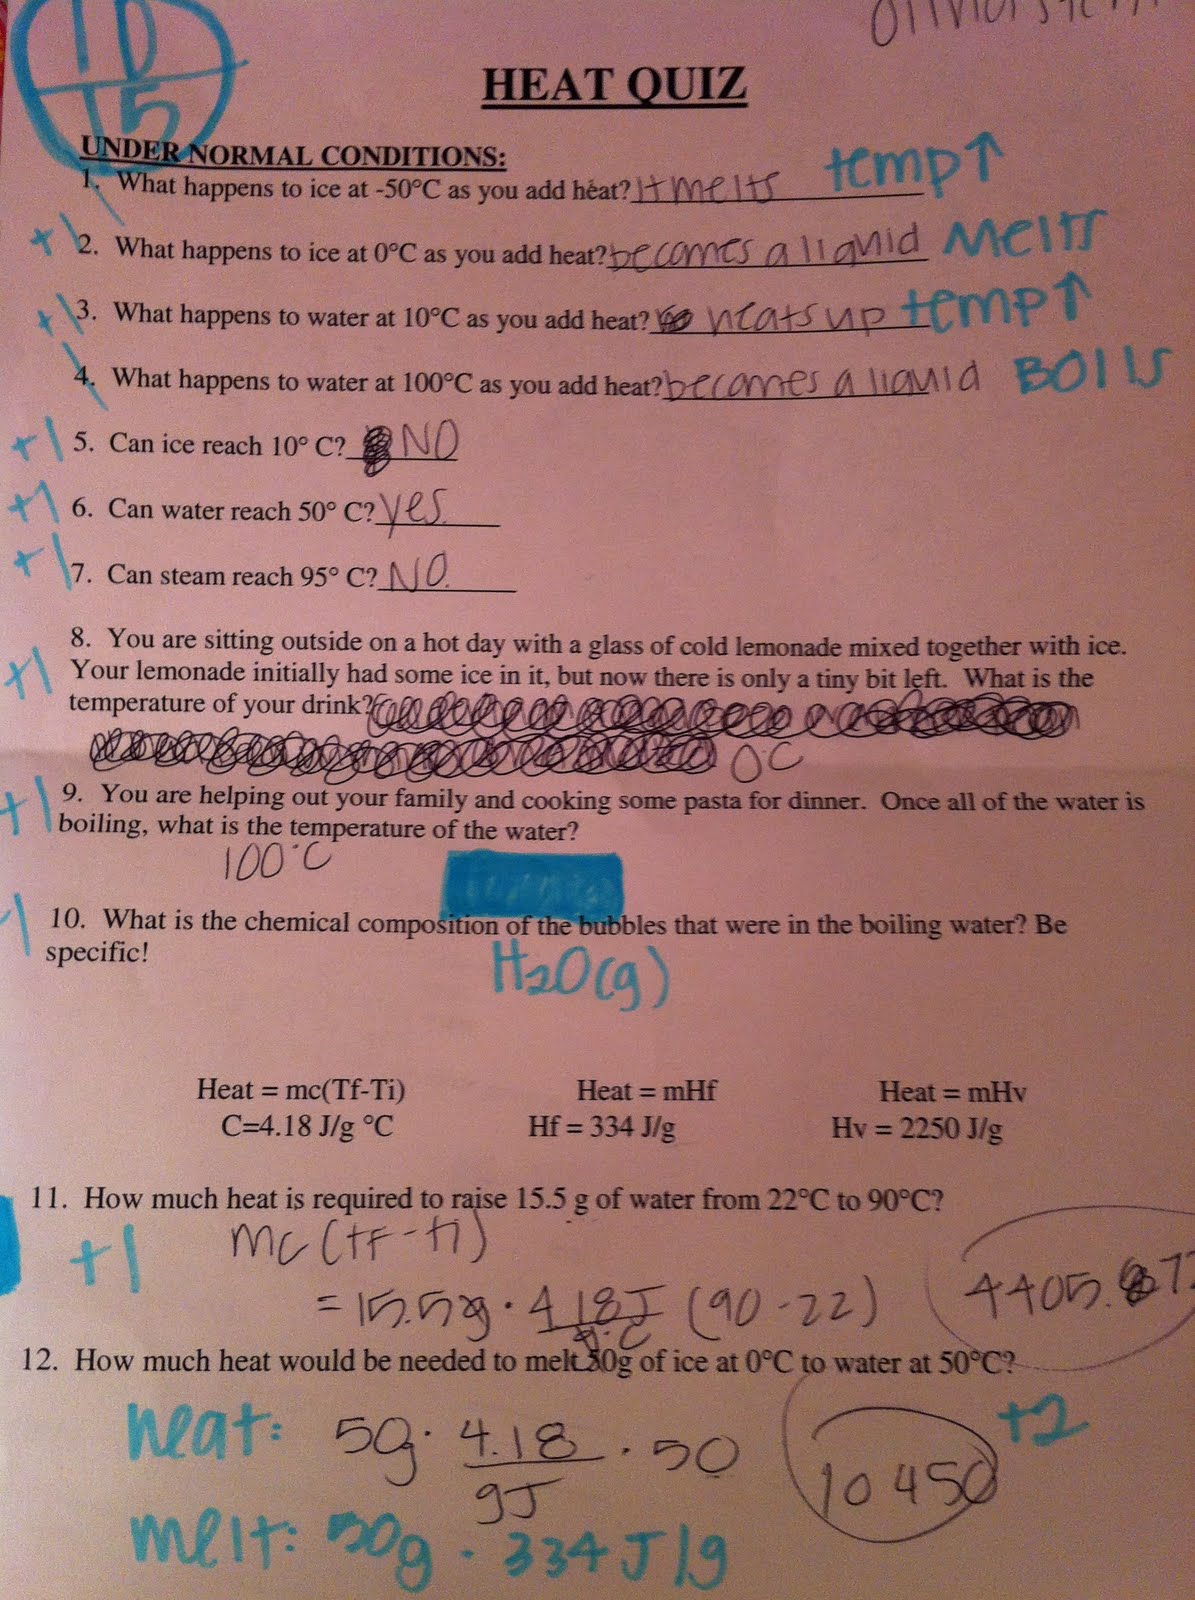 10
15
HEAT QUIZ
UNDER NORMAL CONDITIONS:
1. What happens to ice at -50°C as you add heat? It melts temp↑
+1 2. What happens to ice at 0°C as you add heat? becomes a liquid Melts
+1 3. What happens to water at 10°C as you add heat? heats up temp↑
4. What happens to water at 100°C as you add heat? becomes a liquid BOIls
+1 5. Can ice reach 10° C? NO
+1 6. Can water reach 50° C? yes.
+1 7. Can steam reach 95° C? NO.
8. You are sitting outside on a hot day with a glass of cold lemonade mixed together with ice.
+1 Your lemonade initially had some ice in it, but now there is only a tiny bit left. What is the
temperature of your drink?
0°C
+1 9. You are helping out your family and cooking some pasta for dinner. Once all of the water is
boiling, what is the temperature of the water?
100°C
-1 10. What is the chemical composition of the bubbles that were in the boiling water? Be
specific!
H2O(g)
Heat = mc(Tf-Ti) Heat = mHf Heat = mHv
C=4.18 J/g °C Hf = 334 J/g Hv = 2250 J/g
11. How much heat is required to raise 15.5 g of water from 22°C to 90°C?
+1 mc(tf-ti)
= 15.5g · 4.18J (90-22) 4405.
g°C
12. How much heat would be needed to melt 50g of ice at 0°C to water at 50°C?
heat: 50g · 4.18 · 50 10450 +2
gJ
melt: 50g · 334 J/g